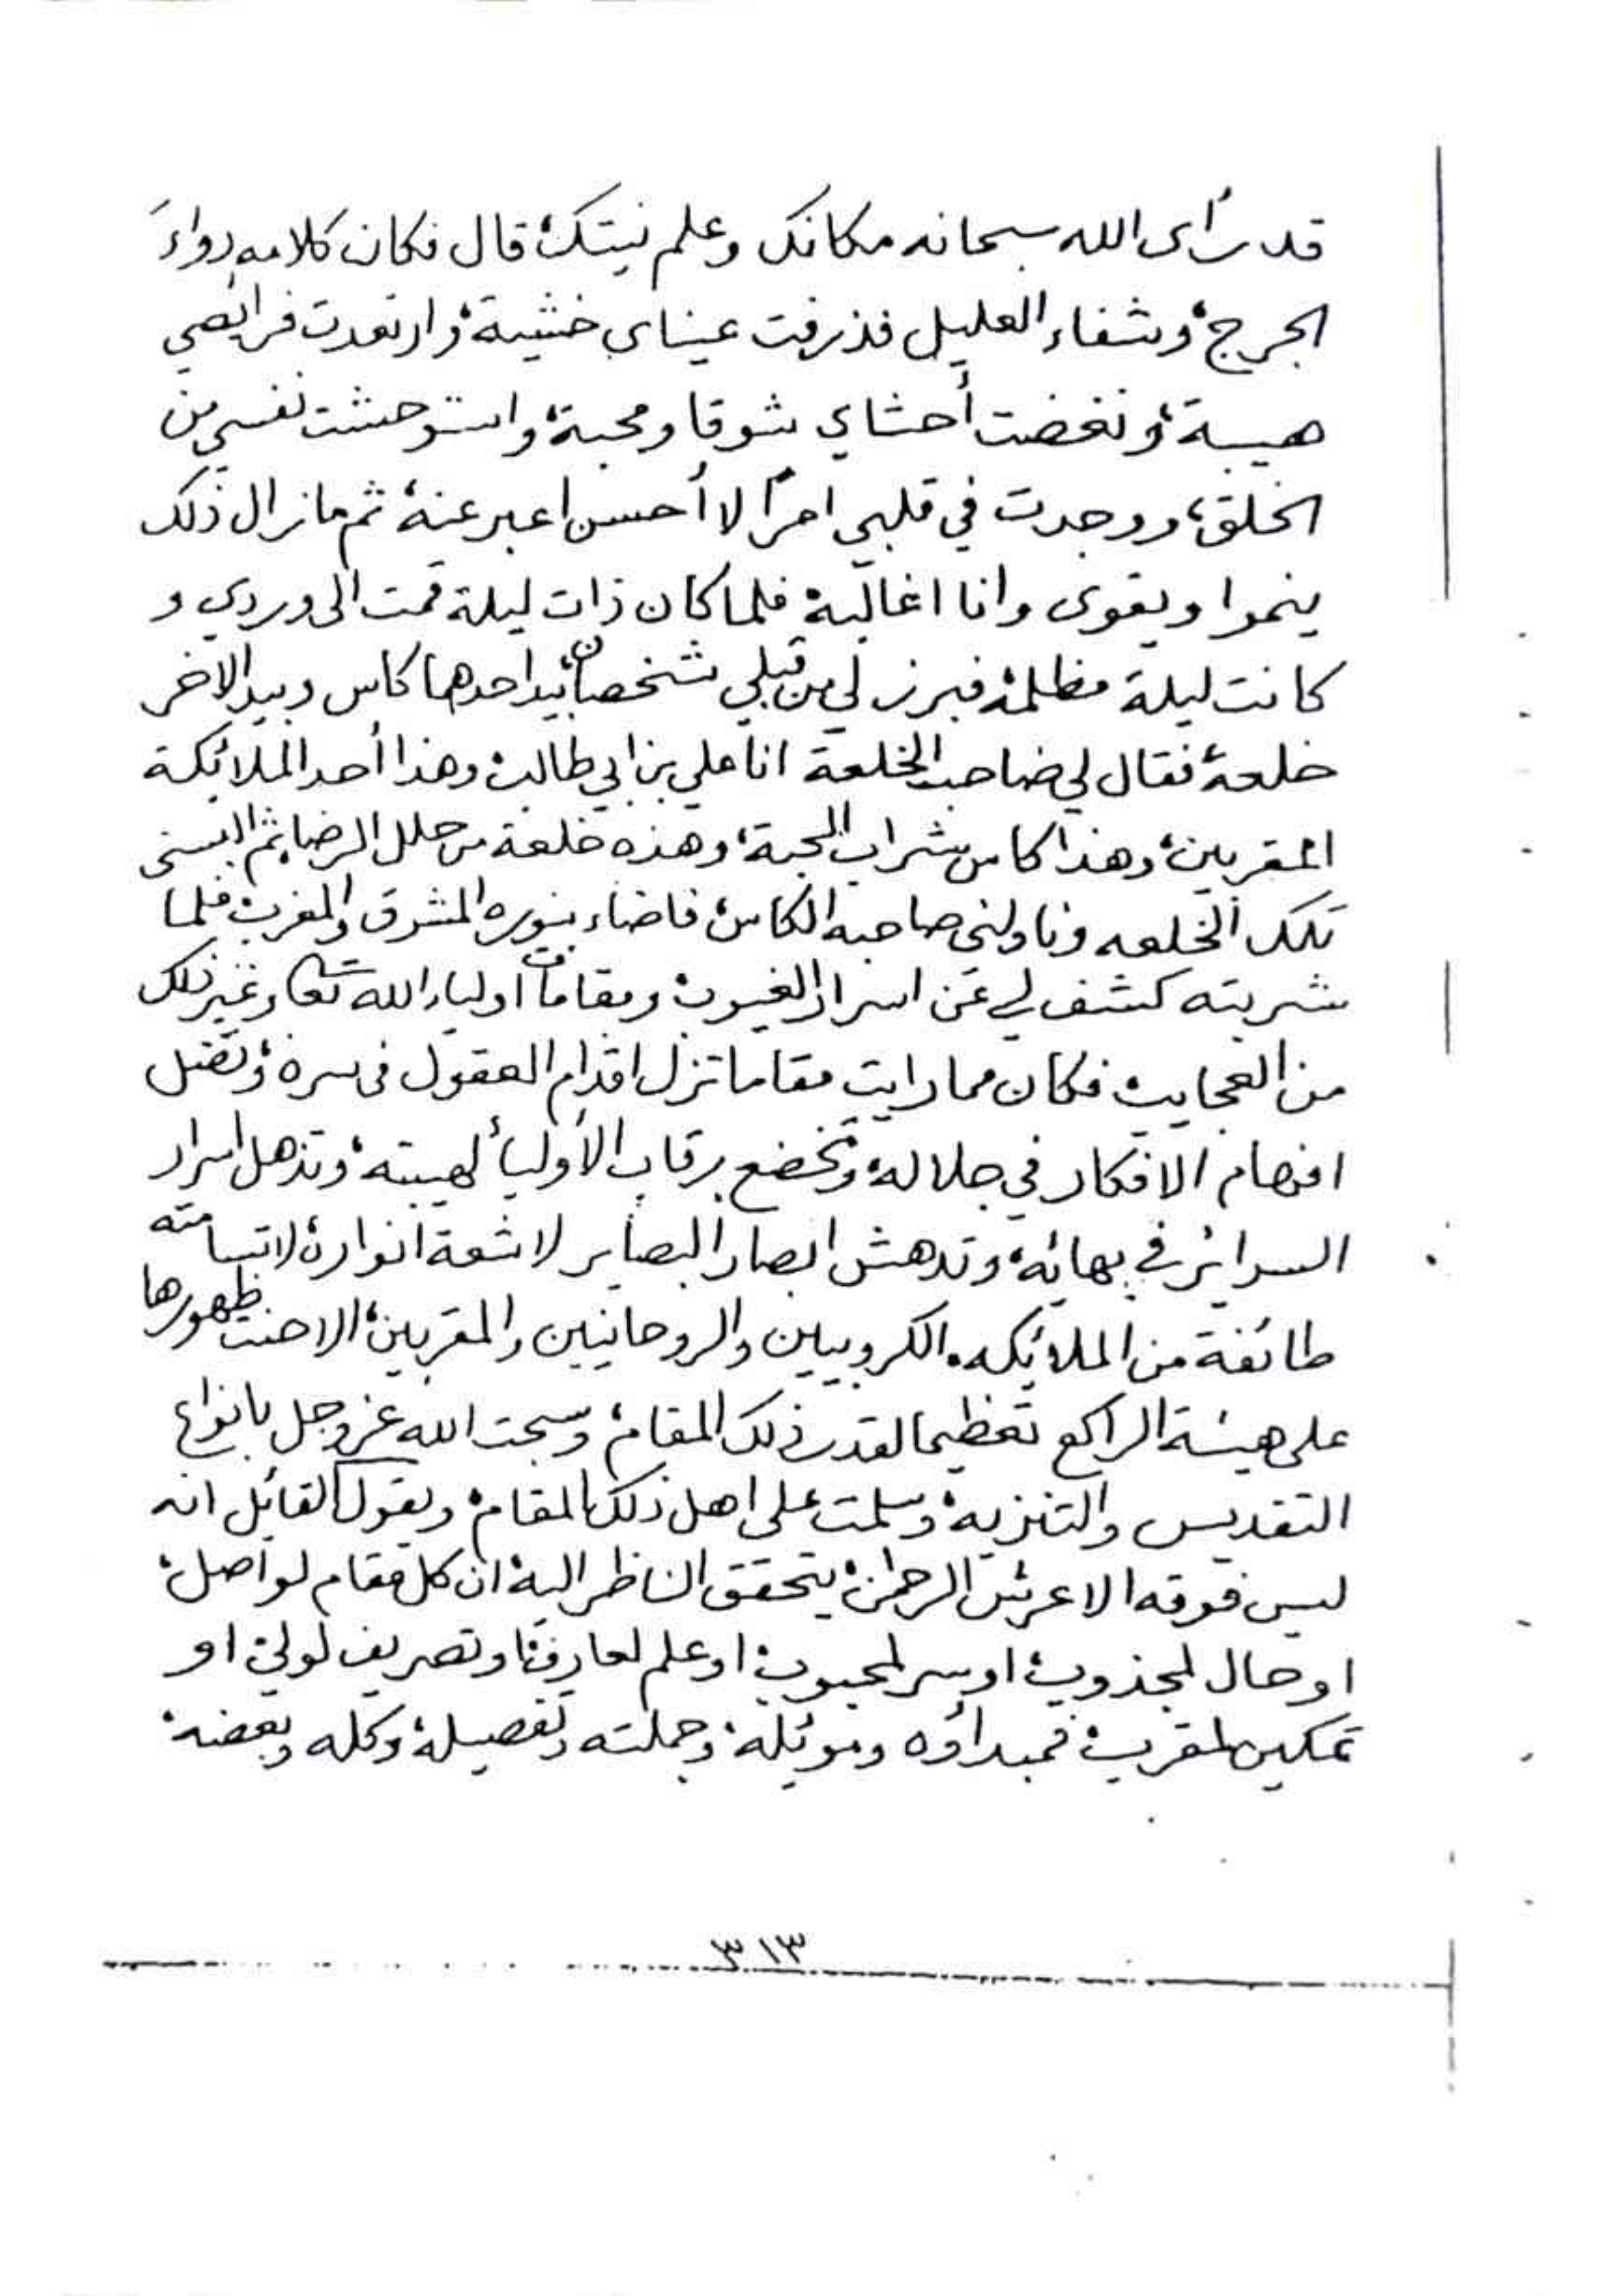 قد رأى الله سبحانه مكانك وعلم نيتك، قال فكان كلامه دواء
الجرح، وشفاء العليل فذرفت عيناي خشية، وارتعدت فرائصي
هيبة، ونغضت أحشاي شوقا ومحبة، واستوحشت نفسي من
الخلق، ووجدت في قلبي امرًا لا أحسن اعبر عنه، ثم مازال ذلك
ينموا ويقوى وانا اغالبه، فلما كان ذات ليلة قمت الى وردي و
كانت ليلة مظلمة، فبرز لي من قبلي شخصان، بيد احدهما كاس وبيد الاخر
خلعة، فقال لي صاحب الخلعة انا علي بن ابي طالب، وهذا أحد الملائكة
المقربين، وهذا كاس من شراب المحبة، وهذه خلعة من حلل الرضا، ثم البسني
تلك الخلعه وناولني صاحبه الكاس، فاضاء بنوره المشرق والمغرب، فلما
شربته كشف لي عن اسرار الغيوب، ومقامات اولياء الله تعا وغير ذلك
من العجايب، فكان مما رايت مقاما تزل اقدام العقول فى سره، وتضل
افهام الافكار في جلاله، وتخضع رقاب الأولياء لهيبته، وتذهل اسرار
السرائر في بهائه، وتدهش ابصار البصاير لاشعة انواره، لا تسامته
طائفة من الملائكه الكروبيين والروحانيين والمقربين، الا حنت ظهورها
على هيئة الراكع تعظيما لقدر ذلك المقام، وسبحت الله عز وجل بانواع
التقديس والتنزيه، وسلمت على اهل ذلك المقام، ويقول القائل انه
ليس فوقه الا عرش الرحمن، يتحقق الناظر اليه، ان كل مقام لواصل،
او حال لمجذوب، او سر لمحبوب، او علم لعارف، او تصريف لولي، او
تمكين لمقرب، فمبدأوه وموئله، وجملته وتفصيله، وكله وبعضه،
٣١٣